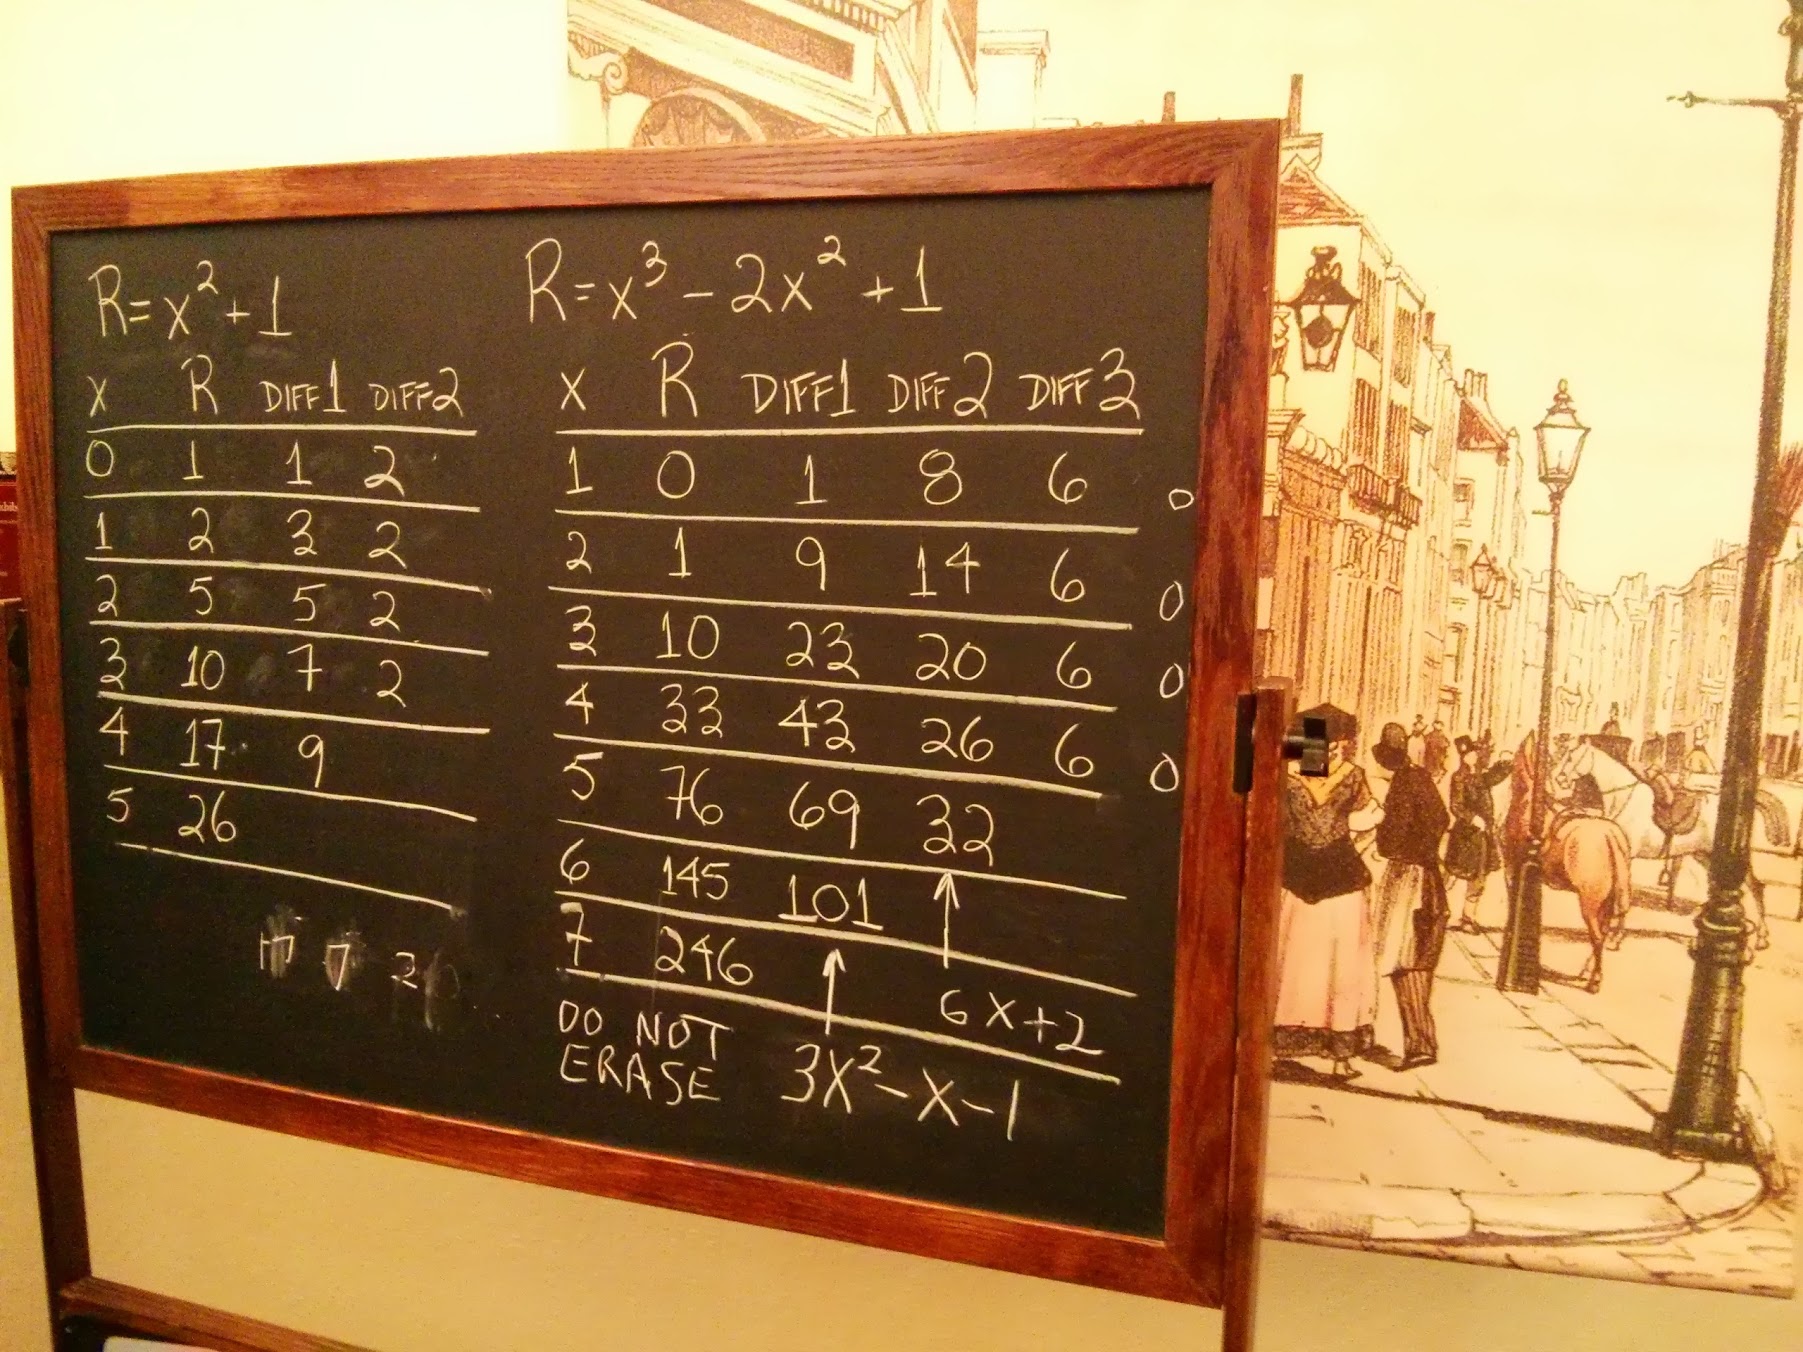 R=x²+1
X R DIFF1 DIFF2
0 1 1 2
1 2 3 2
2 5 5 2
3 10 7 2
4 17 9
5 26
R=x³-2x²+1
X R DIFF1 DIFF2 DIFF3
1 0 1 8 6 0
2 1 9 14 6 0
3 10 23 20 6 0
4 33 43 26 6 0
5 76 69 32
6 145 101
7 246
6X+2
DO NOT
ERASE
3X²-X-1